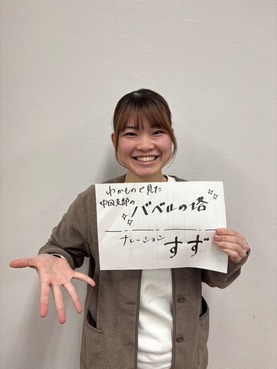 わかもので見た
中国支部の
バベルの塔
ナレーション
すず